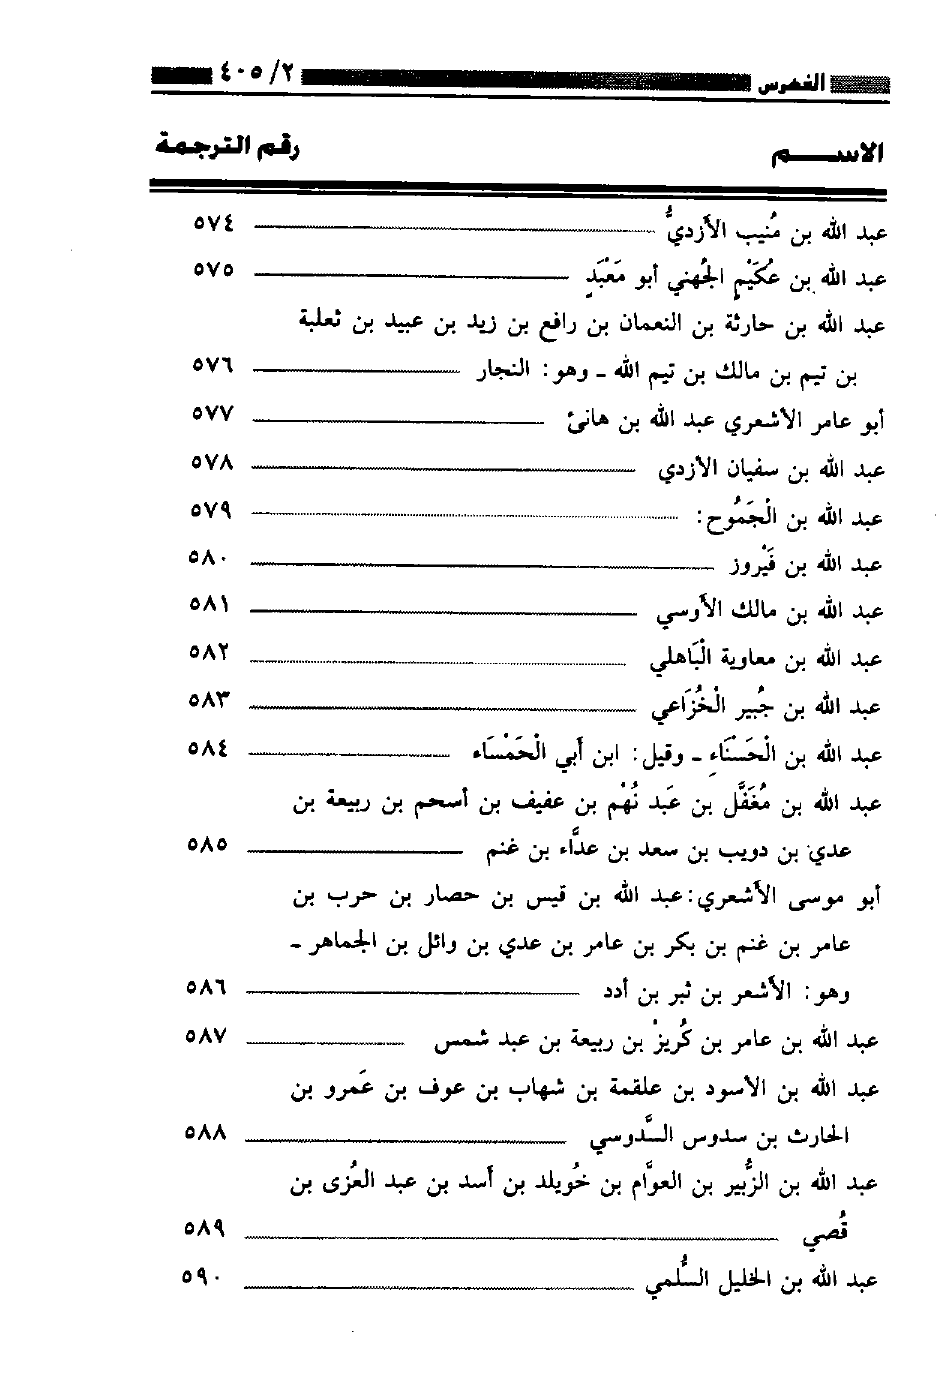 الفهرس ٢/ ٤٠٥
الاسـم رقم الترجمة
عبد الله بن مُنيب الأزديُّ ٥٧٤
عبد الله بن عُكَيْمٍ الجُهني أبو مَعْبَدٍ ٥٧٥
عبد الله بن حارثة بن النعمان بن رافع بن زيد بن عبيد بن ثعلبة
بن تيم بن مالك بن تيم الله ـ وهو: النجار ٥٧٦
أبو عامر الأشعري عبد الله بن هانئ ٥٧٧
عبد الله بن سفيان الأزدي ٥٧٨
عبد الله بن الْجَمُوح: ٥٧٩
عبد الله بن فَيْروز ٥٨٠
عبد الله بن مالك الأَوسي ٥٨١
عبد الله بن معاوية الْبَاهلي ٥٨٢
عبد الله بن جُبير الْخُزَاعي ٥٨٣
عبد الله بن الْحَسْنَاءِ ـ وقيل: ابن أَبي الْحَمْسَاء ٥٨٤
عبد الله بن مُغَفَّل بن عَبد نُهْم بن عفيف بن أسحم بن ربيعة بن
عدي بن دويب بن سعد بن عدَّاء بن غنم ٥٨٥
أبو موسى الأشعري: عبد الله بن قيس بن حصار بن حرب بن
عامر بن غنم بن بكر بن عامر بن عدي بن وائل بن الجماهر ـ
وهو: الأشعر بن ثبر بن أدد ٥٨٦
عبد الله بن عامر بن كُريزْ بن ربيعة بن عبد شمس ٥٨٧
عبد الله بن الأسود بن علقمة بن شهاب بن عوف بن عَمرو بن
الحارث بن سدوس السَّدوسي ٥٨٨
عبد الله بن الزُّبير بن العوَّام بن خُويلد بن أسد بن عبد العُزى بن
قُصي ٥٨٩
عبد الله بن الخليل السُّلمي ٥٩٠